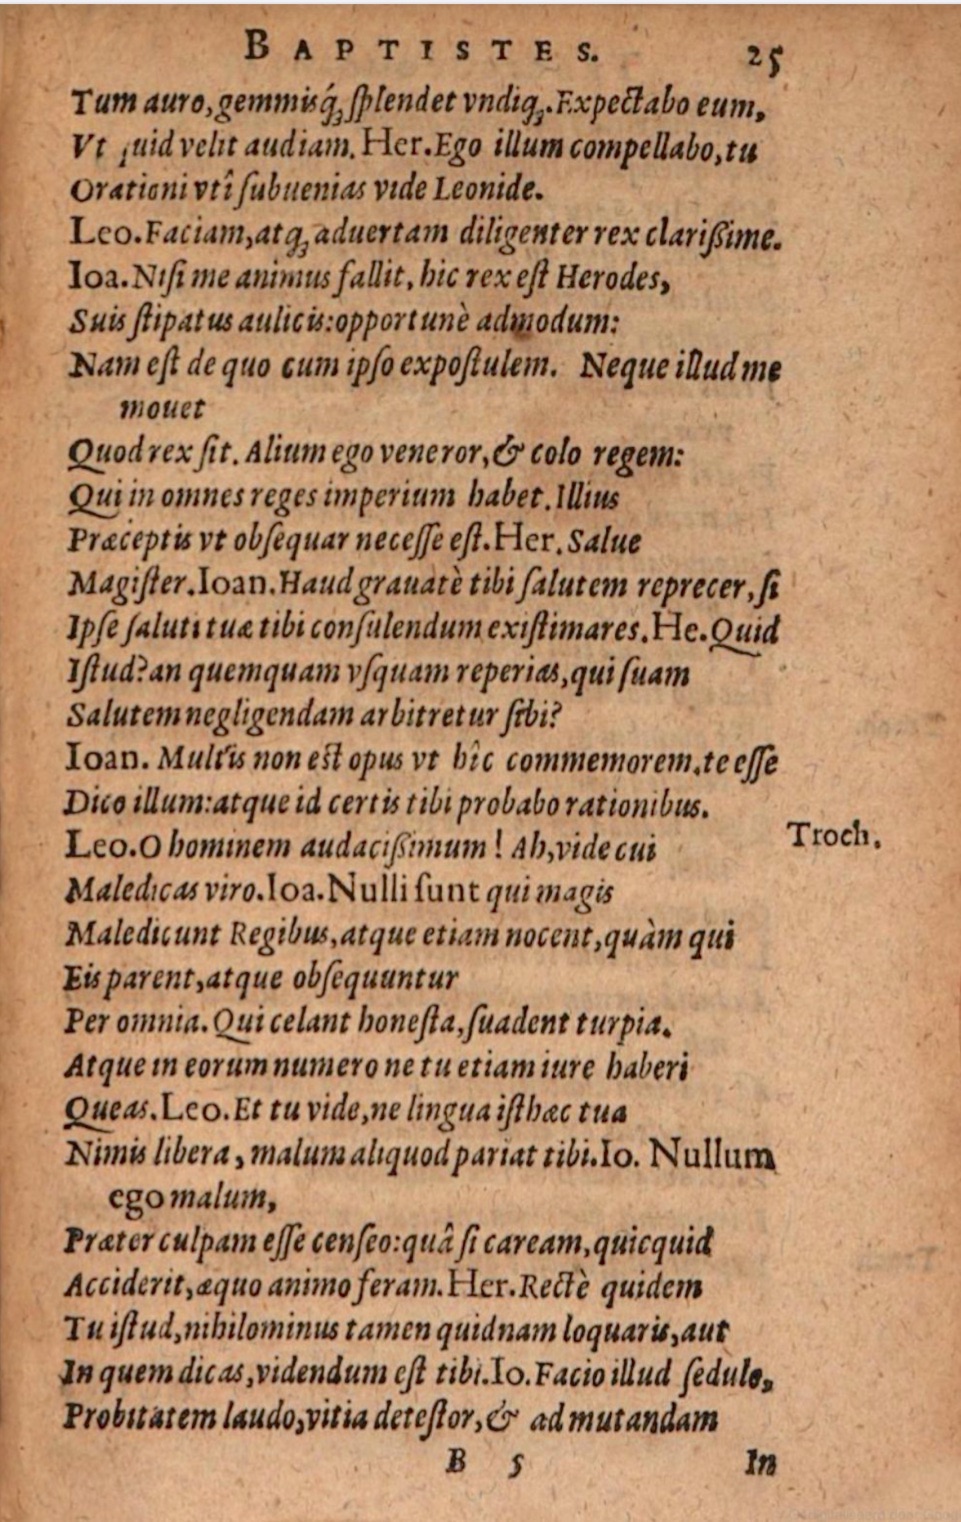 BAPTISTES. 25
Tum auro, gemmisq́ꝫ ſplendet vndiqꝫ. Expectabo eum,
Vt quid velit audiam. Her. Ego illum compellabo, tu
Orationi vtî ſubuenias vide Leonide.
Leo. Faciam, atqꝫ aduertam diligenter rex clarißime.
Ioa. Niſi me animus fallit, hic rex eſt Herodes,
Suis ſtipatus aulicis: opportunè admodum:
Nam eſt de quo cum ipſo expoſtulem. Neque illud me
mouet
Quod rex ſit. Alium ego veneror, & colo regem:
Qui in omnes reges imperium habet. Illius
Præceptis vt obſequar neceſſe eſt. Her. Salue
Magiſter. Ioan. Haud grauatè tibi ſalutem reprecer, ſi
Ipſe ſaluti tuæ tibi conſulendum exiſtimares. He. Quid
Iſtud? an quemquam vſquam reperias, qui ſuam
Salutem negligendam arbitretur ſibi?
Ioan. Multis non eſt opus vt hîc commemorem, te eſſe
Dico illum: atque id certis tibi probabo rationibus.
Leo. O hominem audacißimum! Ah, vide cui
Troch.
Maledicas viro. Ioa. Nulli ſunt qui magis
Maledicunt Regibus, atque etiam nocent, quàm qui
Eis parent, atque obſequuntur
Per omnia. Qui celant honeſta, ſuadent turpia.
Atque in eorum numero ne tu etiam iure haberi
Queas. Leo. Et tu vide, ne lingua iſthæc tua
Nimis libera, malum aliquod pariat tibi. Io. Nullum
ego malum,
Præter culpam eſſe cenſeo: quâ ſi caream, quicquid
Acciderit, æquo animo feram. Her. Rectè quidem
Tu iſtud, nihilominus tamen quidnam loquaris, aut
In quem dicas, videndum eſt tibi. Io. Facio illud ſedulo,
Probitatem laudo, vitia deteſtor, & ad mutandam
B 5 In